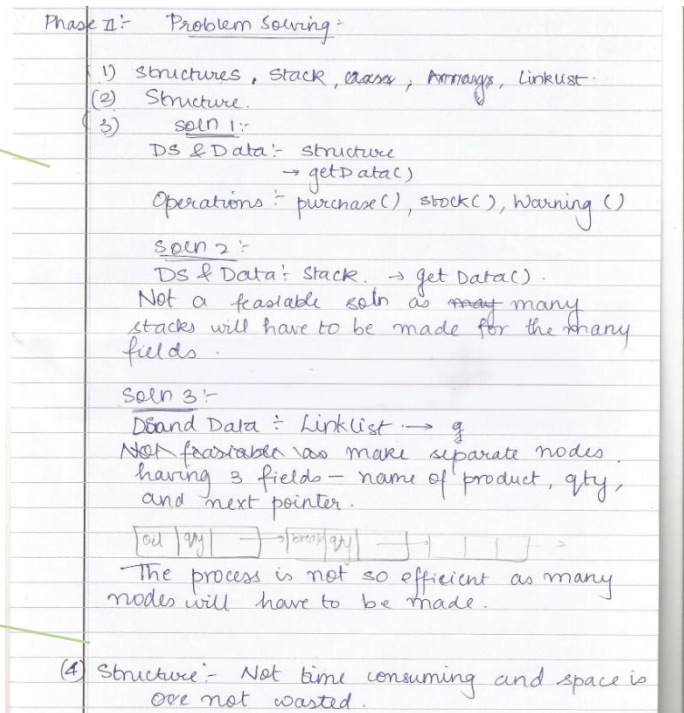 Phase II:- Problem Solving:-
(1) Structures, Stack, , Arrays, Linklist.
(2) Structure.
(3) Soln 1:-
DS & Data:- structure
→ getData()
Operations:- purchase(), stock(), Warning()
Soln 2:-
DS & Data:- Stack. → get Data().
Not a feasiable soln as may many
stacks will have to be made for the many
fields.
Soln 3:-
DSand Data:- Linklist → g
Not feasiable as make separate nodes.
having 3 fields - name of product, qty,
and next pointer.
oil qty → bread qty → →
The process is not so efficient as many
nodes will have to be made.
(4) Structure:- Not time consuming and space is
not wasted.